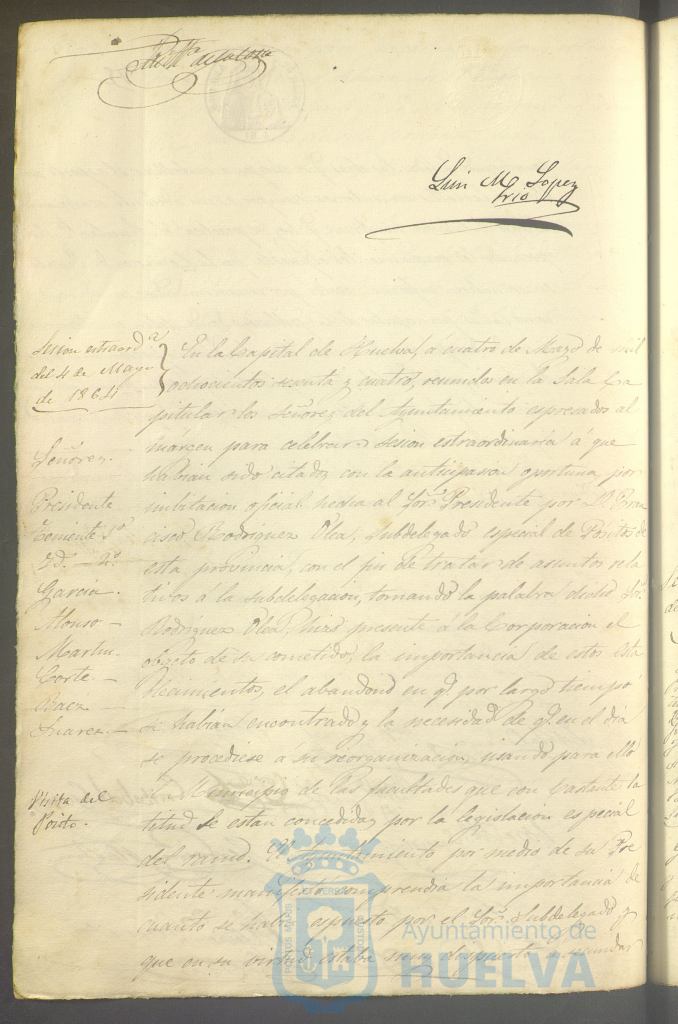 Luis M. Lopez
Sesion estraord.ª
del 4 de Mayo
de 1864
Señores.
Presidente
Teniente 1º
Yd. - 2º
Garcia.
Alonso -
Martin.
Corte -
Baez -
Suarez. -
Visita del
Posito.
En la Capital de Huelva, a cuatro de Mayo de mil
ochocientos sesenta y cuatro, reunidos en la Sala Ca
pitular los Señores del Ayuntamiento espresados al
margen para celebrar sesion estraordinaria á que
habian sido citados con la anticipacion oportuna, por
invitacion oficial hecha al Sor. Presidente por D. Fran
cisco Rodriguez Olea, Subdelegado especial de Pósitos de
esta provincia, con el fin de tratar de asuntos rela
tivos á la subdelegacion, tomando la palabra dicho Sor.
Rodriguez Olea, hizo presente á la Corporacion el
objeto de su cometido, la importancia de estos esta
blecimientos, el abandono en q.e por largo tiempo
se habian encontrado y la necesidad de q.e en el dia
se procediese á su reorganizacion, usando para ello
el Municipio de las facultades que con bastante la
titud le estan concedidas por la legislacion especial
del ramo. El Ayuntamiento por medio de su Pre
sidente manifestó comprendia la importancia de
cuanto se habia espuesto por el Sor. Subdelegado y
que en su virtud estaba muy dispuesto a secundar
Ayuntamiento de
HUELVA